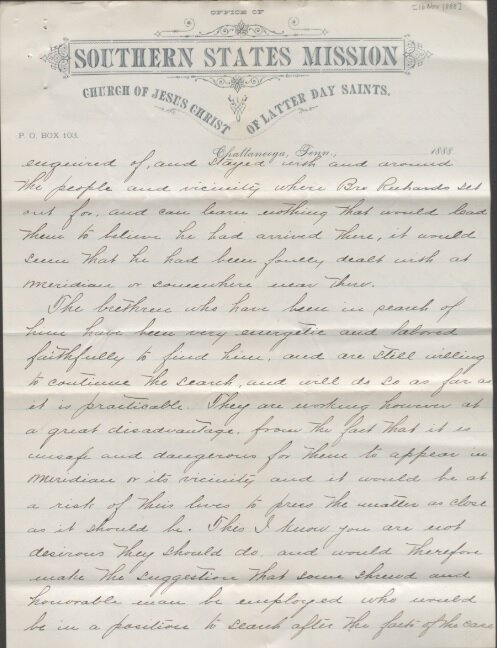 [16 Nov 1888]
OFFICE OF
SOUTHERN STATES MISSION
CHURCH OF JESUS CHRIST OF LATTER DAY SAINTS.
P. O. BOX 103.
Chattanooga, Tenn., 1888
enquired of, and stayed with and around
the people and vicinity where Bro Richards set
out for, and can learn nothing that would lead
them to believe he had arrived there, it would
seem that he had been foully dealt with at
Meridian or somewhere near there.
The brethren who have been in search of
him have been very energetic and labored
faithfully to find him, and are still willing
to continue the search, and will do so as far as
it is practicable. They are working however at
a great disadvantage, from the fact that it is
unsafe and dangerous for them to appear in
Meridian or its vicinity and it would be at
a risk of their lives to press the matter as close
as it should be. This I know you are not
desirous they should do, and would therefore
make the suggestion that some shrewd and
honorable man be employed who would
be in a position to search after the facts of the case